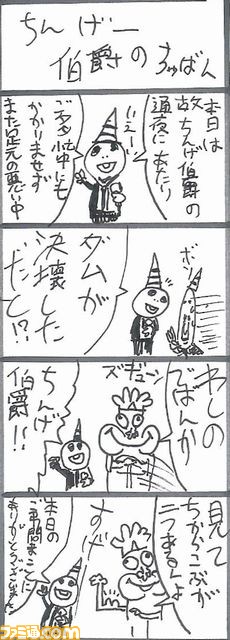 ちんげー
伯爵の
ちゅばん
本日は
故ちんげ伯爵の
通夜にあたり
いえーい
ご多忙中にも
かかりませず
また足元の悪い中
ボソ
ダムが
決壊した
だし!?
わしの
でばんか
ズギューン
ちんげ
伯爵!!
見て
ちからこぶが
二つあるんよ
すげー
本日の
ご弔問まことに
ありがとうございました
ファミ通.com